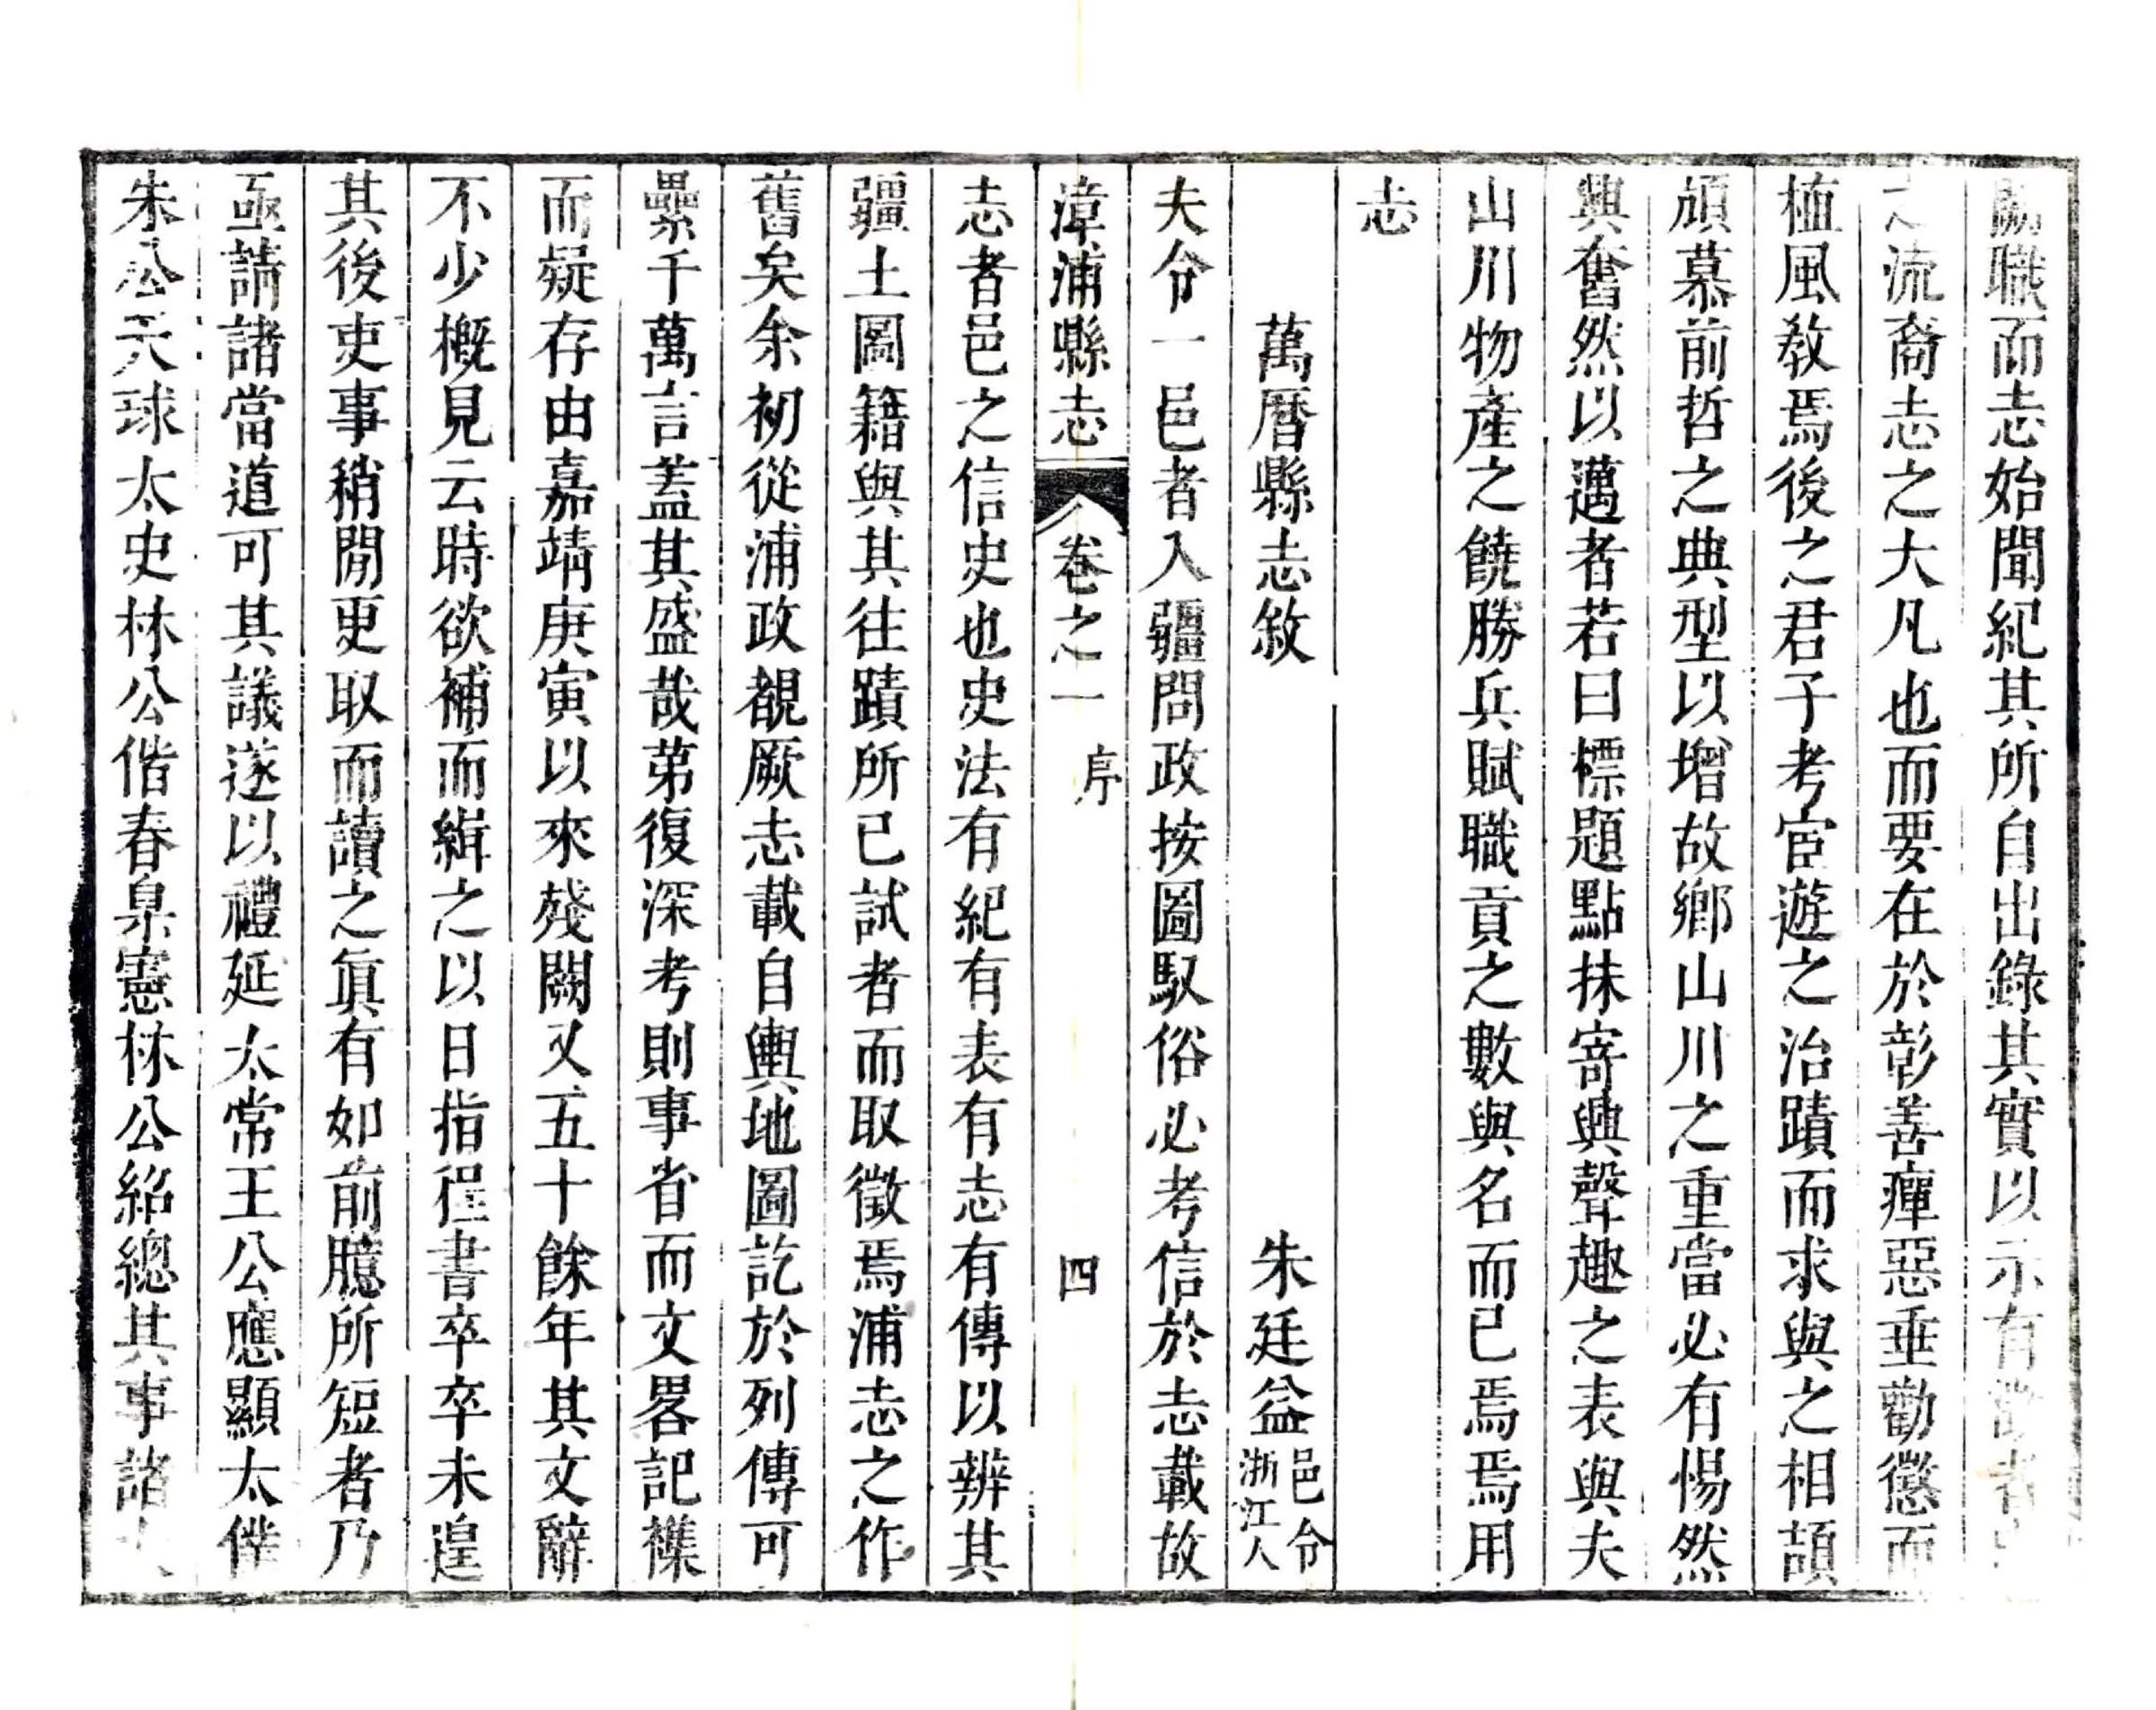 職而志始聞紀其所自出錄其實以示有者
流裔志之大凡也而要在於彰善癉惡垂勸懲而
植風敎焉後之君子考宦遊之治蹟而求與之相頡
頏慕前哲之典型以增故鄉山川之重當必有惕然
興奮然以邁者若曰標題點抹寄興聲趣之表與夫
山川物產之饒勝兵賦職貢之數與名而已焉焉用
志
萬曆縣志敘 朱廷益邑令浙江人
夫令一邑者入疆問政按圖馭俗必考信於志載故
漳浦縣志 卷之一 序 四
志者邑之信史也史法有紀有表有志有傳以辨其
疆土圖籍與其往蹟所已試者而取徵焉浦志之作
舊矣余初從浦政覩厥志載自輿地圖訖於列傳可
纍千萬言蓋其盛哉苐復深考則事省而文畧記襍
而疑存由嘉靖庚寅以來殘闕又五十餘年其文辭
不少概見云時欲補而緝之以日指程書卒卒未遑
其後吏事稍閒更取而讀之眞有如前臆所短者乃
亟請諸當道可其議遂以禮延太常王公應顯太僕
朱公天球太史林公偕春臬憲林公紹總其事諸